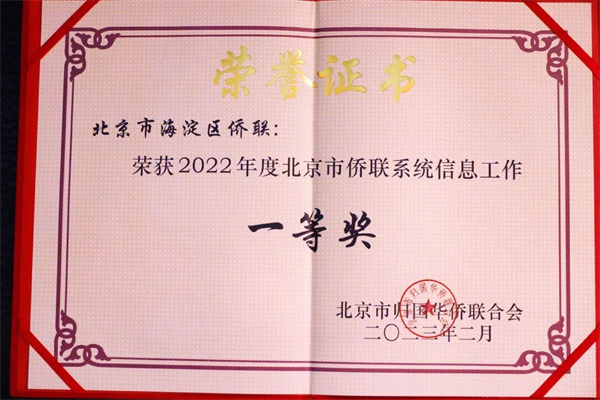 荣誉证书
北京市海淀区侨联：
荣获2022年度北京市侨联系统信息工作
一等奖
北京市归国华侨联合会
二〇二三年二月